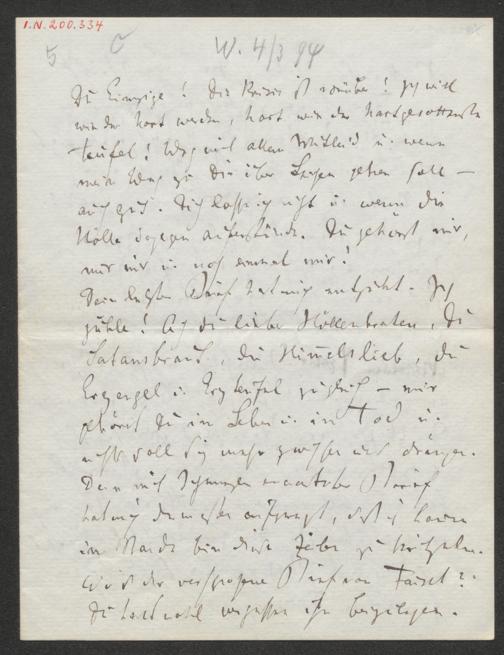 I.N. 200.334
5
W. 4/3 94
Du Einzige! Die Krisis ist vorüber! Ich will
wieder hart werden, hart wie der hartgesottenste
Teufel! Weg mit allem Mitleid u. wenn
mein Weg zu Dir über Leichen gehen soll —
auch gut. Dich lass ich nicht u. wenn die
Hölle dagegen aufstünde. Du gehörst mir,
nur mir u. noch einmal mir!
Dein letzter Brief hat mich entzückt. Ich
juble! Ach du lieber Höllenbraten, Du
Satansbraut, Du Himmelslieb, Du
Erzengel u. Erzteufel zugleich — mir
gehörst Du im Leben u. im Tod u.
nichts soll sich mehr zwischen uns drängen.
Dein mit Schmerzen erwarteter Brief
hat mich dermassen aufgeregt, daß ich kaum
im Stande bin diese Zeilen zu kritzeln.
Wo ist der versprochene Brief von Faist?
Du hast wohl vergessen ihn beizulegen.